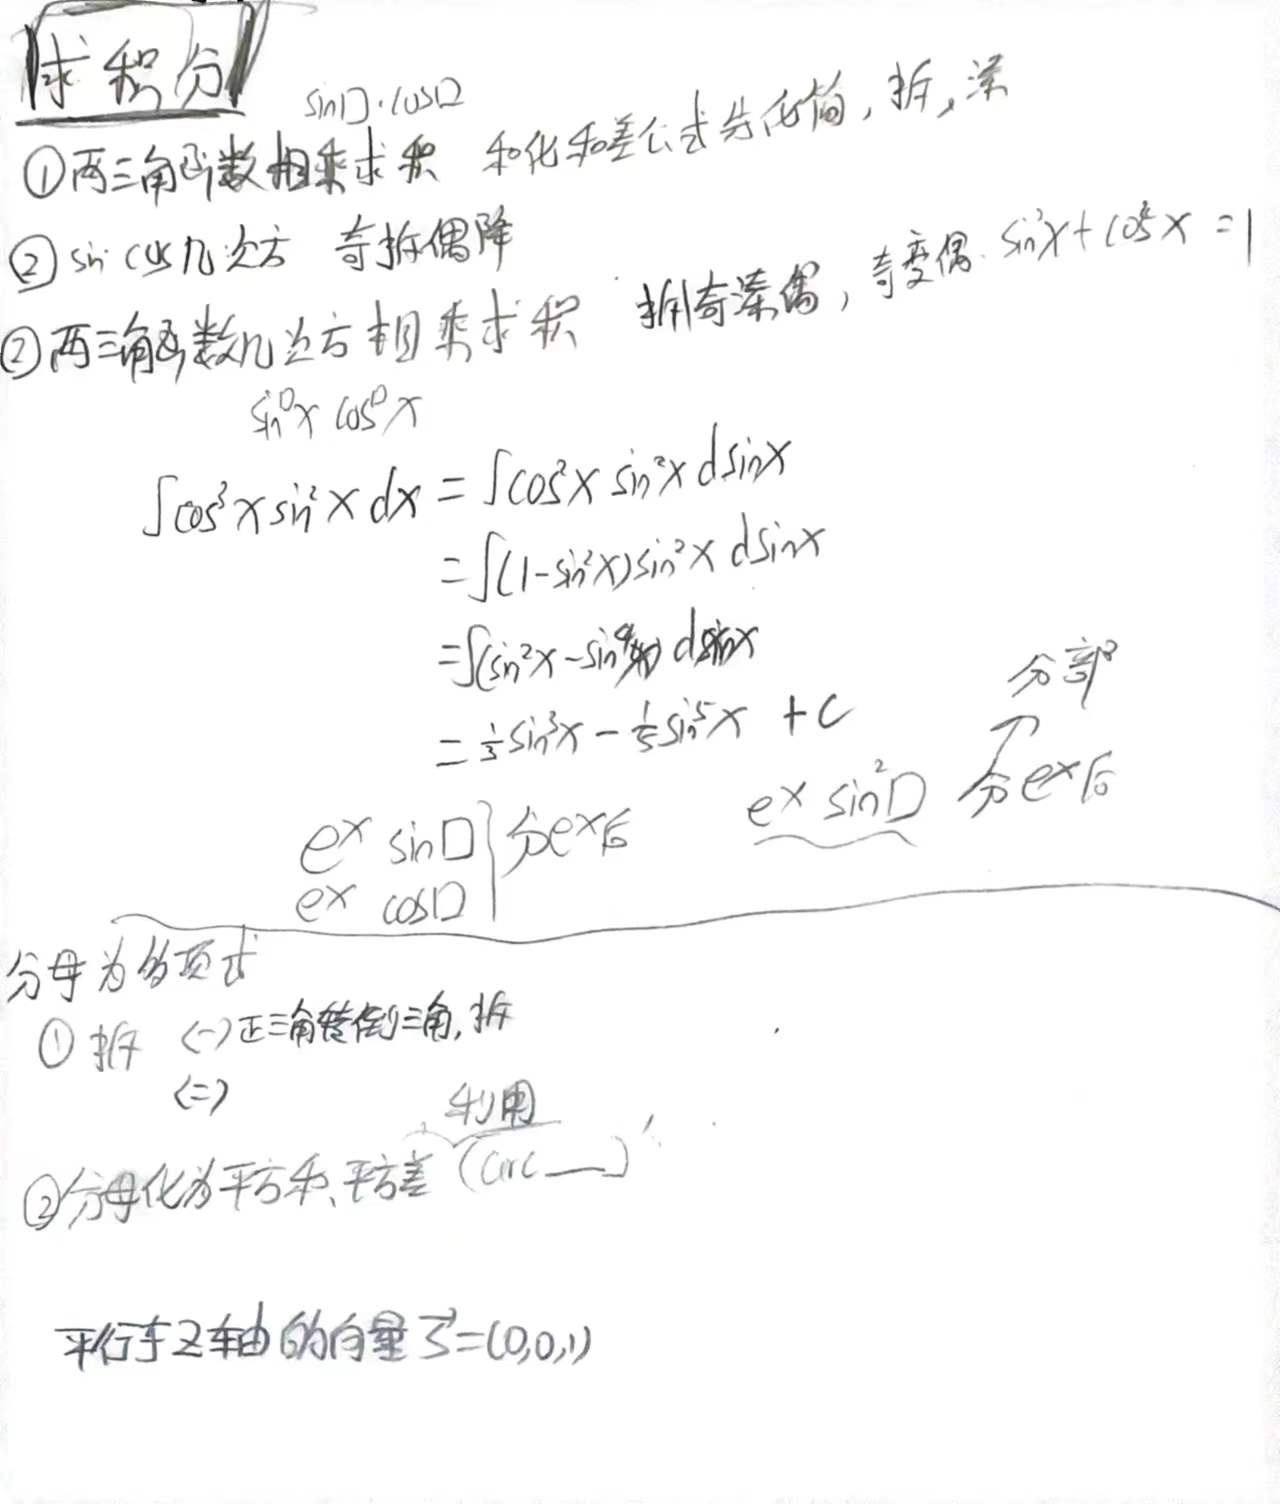 求积分
sin□·cos□
①两三角函数相乘求积 和化和差公式先化简，拆，凑
② sin cos几次方 奇拆偶降
②两三角函数几次方相乘求积 拆奇凑偶，奇变偶. sin²x+cos²x=1
sin□x cos□x
∫cos³x sin²x dx = ∫cos²x sin²x dsinx
=∫(1-sin²x)sin²x dsinx
=∫(sin²x-sin⁴x) dsinx
=⅓sin³x-⅕sin⁵x +C
分部
e^x sin□ 分e^x后 e^x sin²□ 分e^x后
e^x cos□
分母为多项式
①拆 <一>正三角转倒三角,拆
<二>
利用
②分母化为平方和、平方差 (arc__)
平行于Z轴的向量 S⃗=(0,0,1)